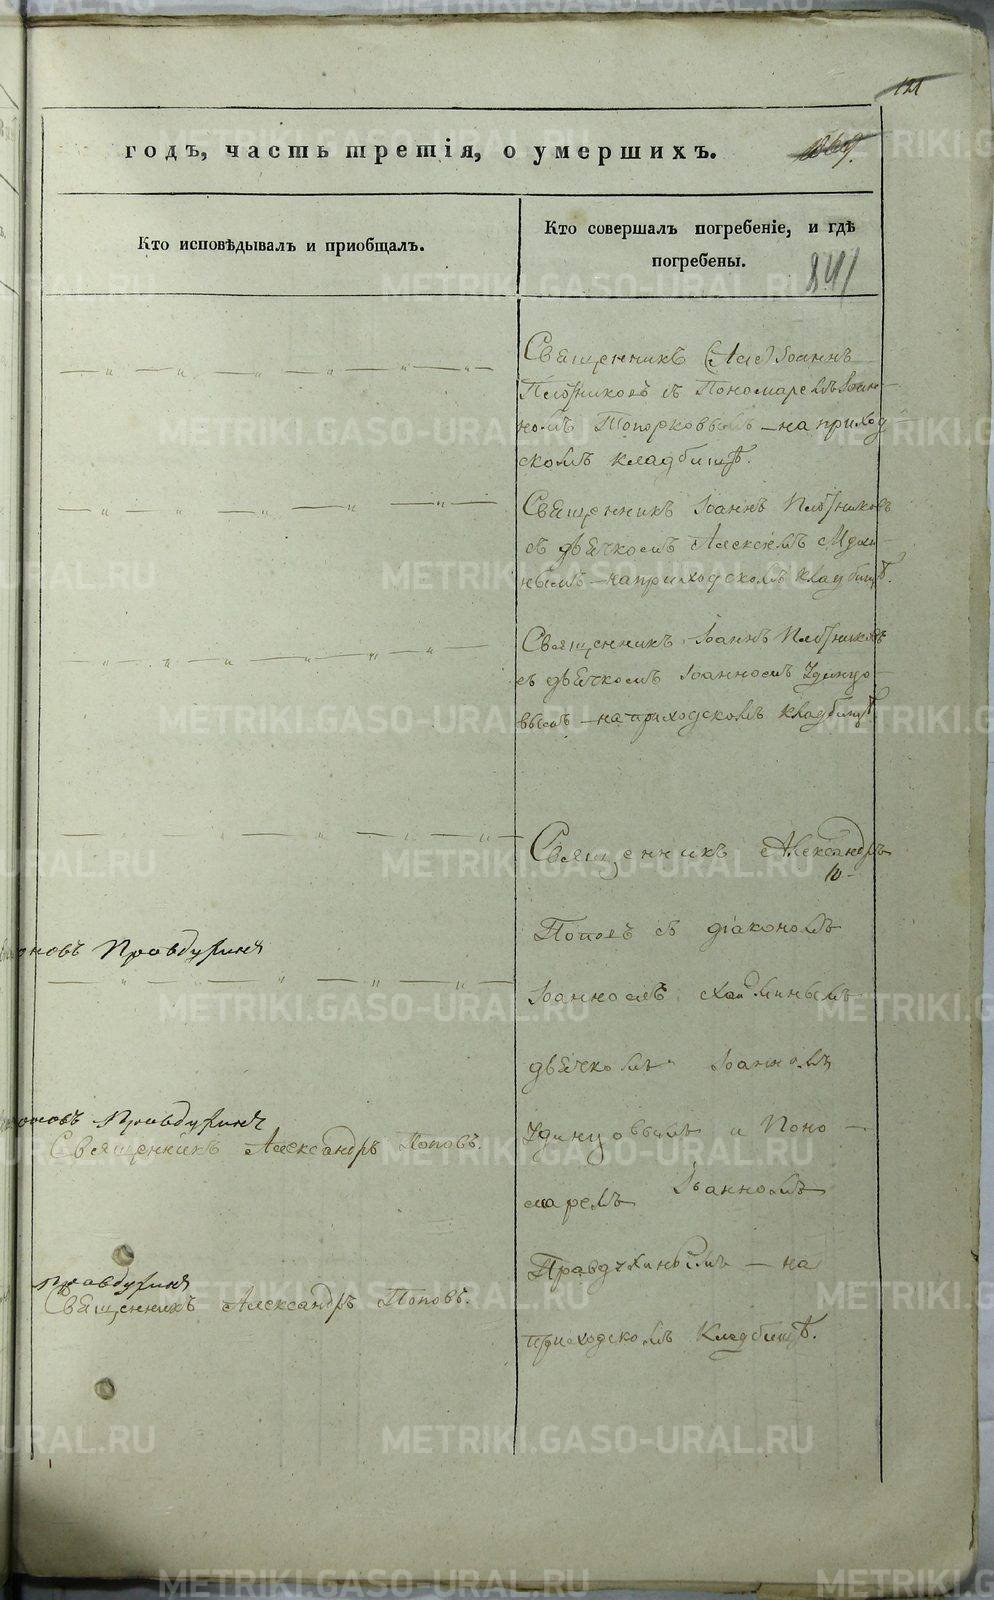 121
годъ, часть третія, о умершихъ.
Кто исповѣдывалъ и приобщалъ.
Кто совершалъ погребеніе, и гдѣ
погребены.
841
Священникъ Іоаннъ
Плотниковъ съ Пономаремъ Іоан-
номъ Топорковымъ – на приход
скомъ кладбищѣ.
Священникъ Іоаннъ Плотниковъ
съ дьячкомъ Алексіемъ
нымъ – на приходскомъ кладбищѣ.
Священникъ Іоаннъ Плотниковъ
съ дьячкомъ Іоанномъ Удинцо-
вымъ – на приходскомъ кладбищѣ
Священникъ Александръ
Поповъ съ діакономъ
Іоанномъ
дьячкомъ Іоанномъ
Удинцовымъ и Поно-
маремъ Іоанномъ
Правдухинымъ – на
приходскомъ Кладбищѣ.
Правдухинъ
Правдухинъ
Священникъ Александръ Поповъ.
Правдухинъ
Священникъ Александръ Поповъ.
METRIKI.GASO-URAL.RU